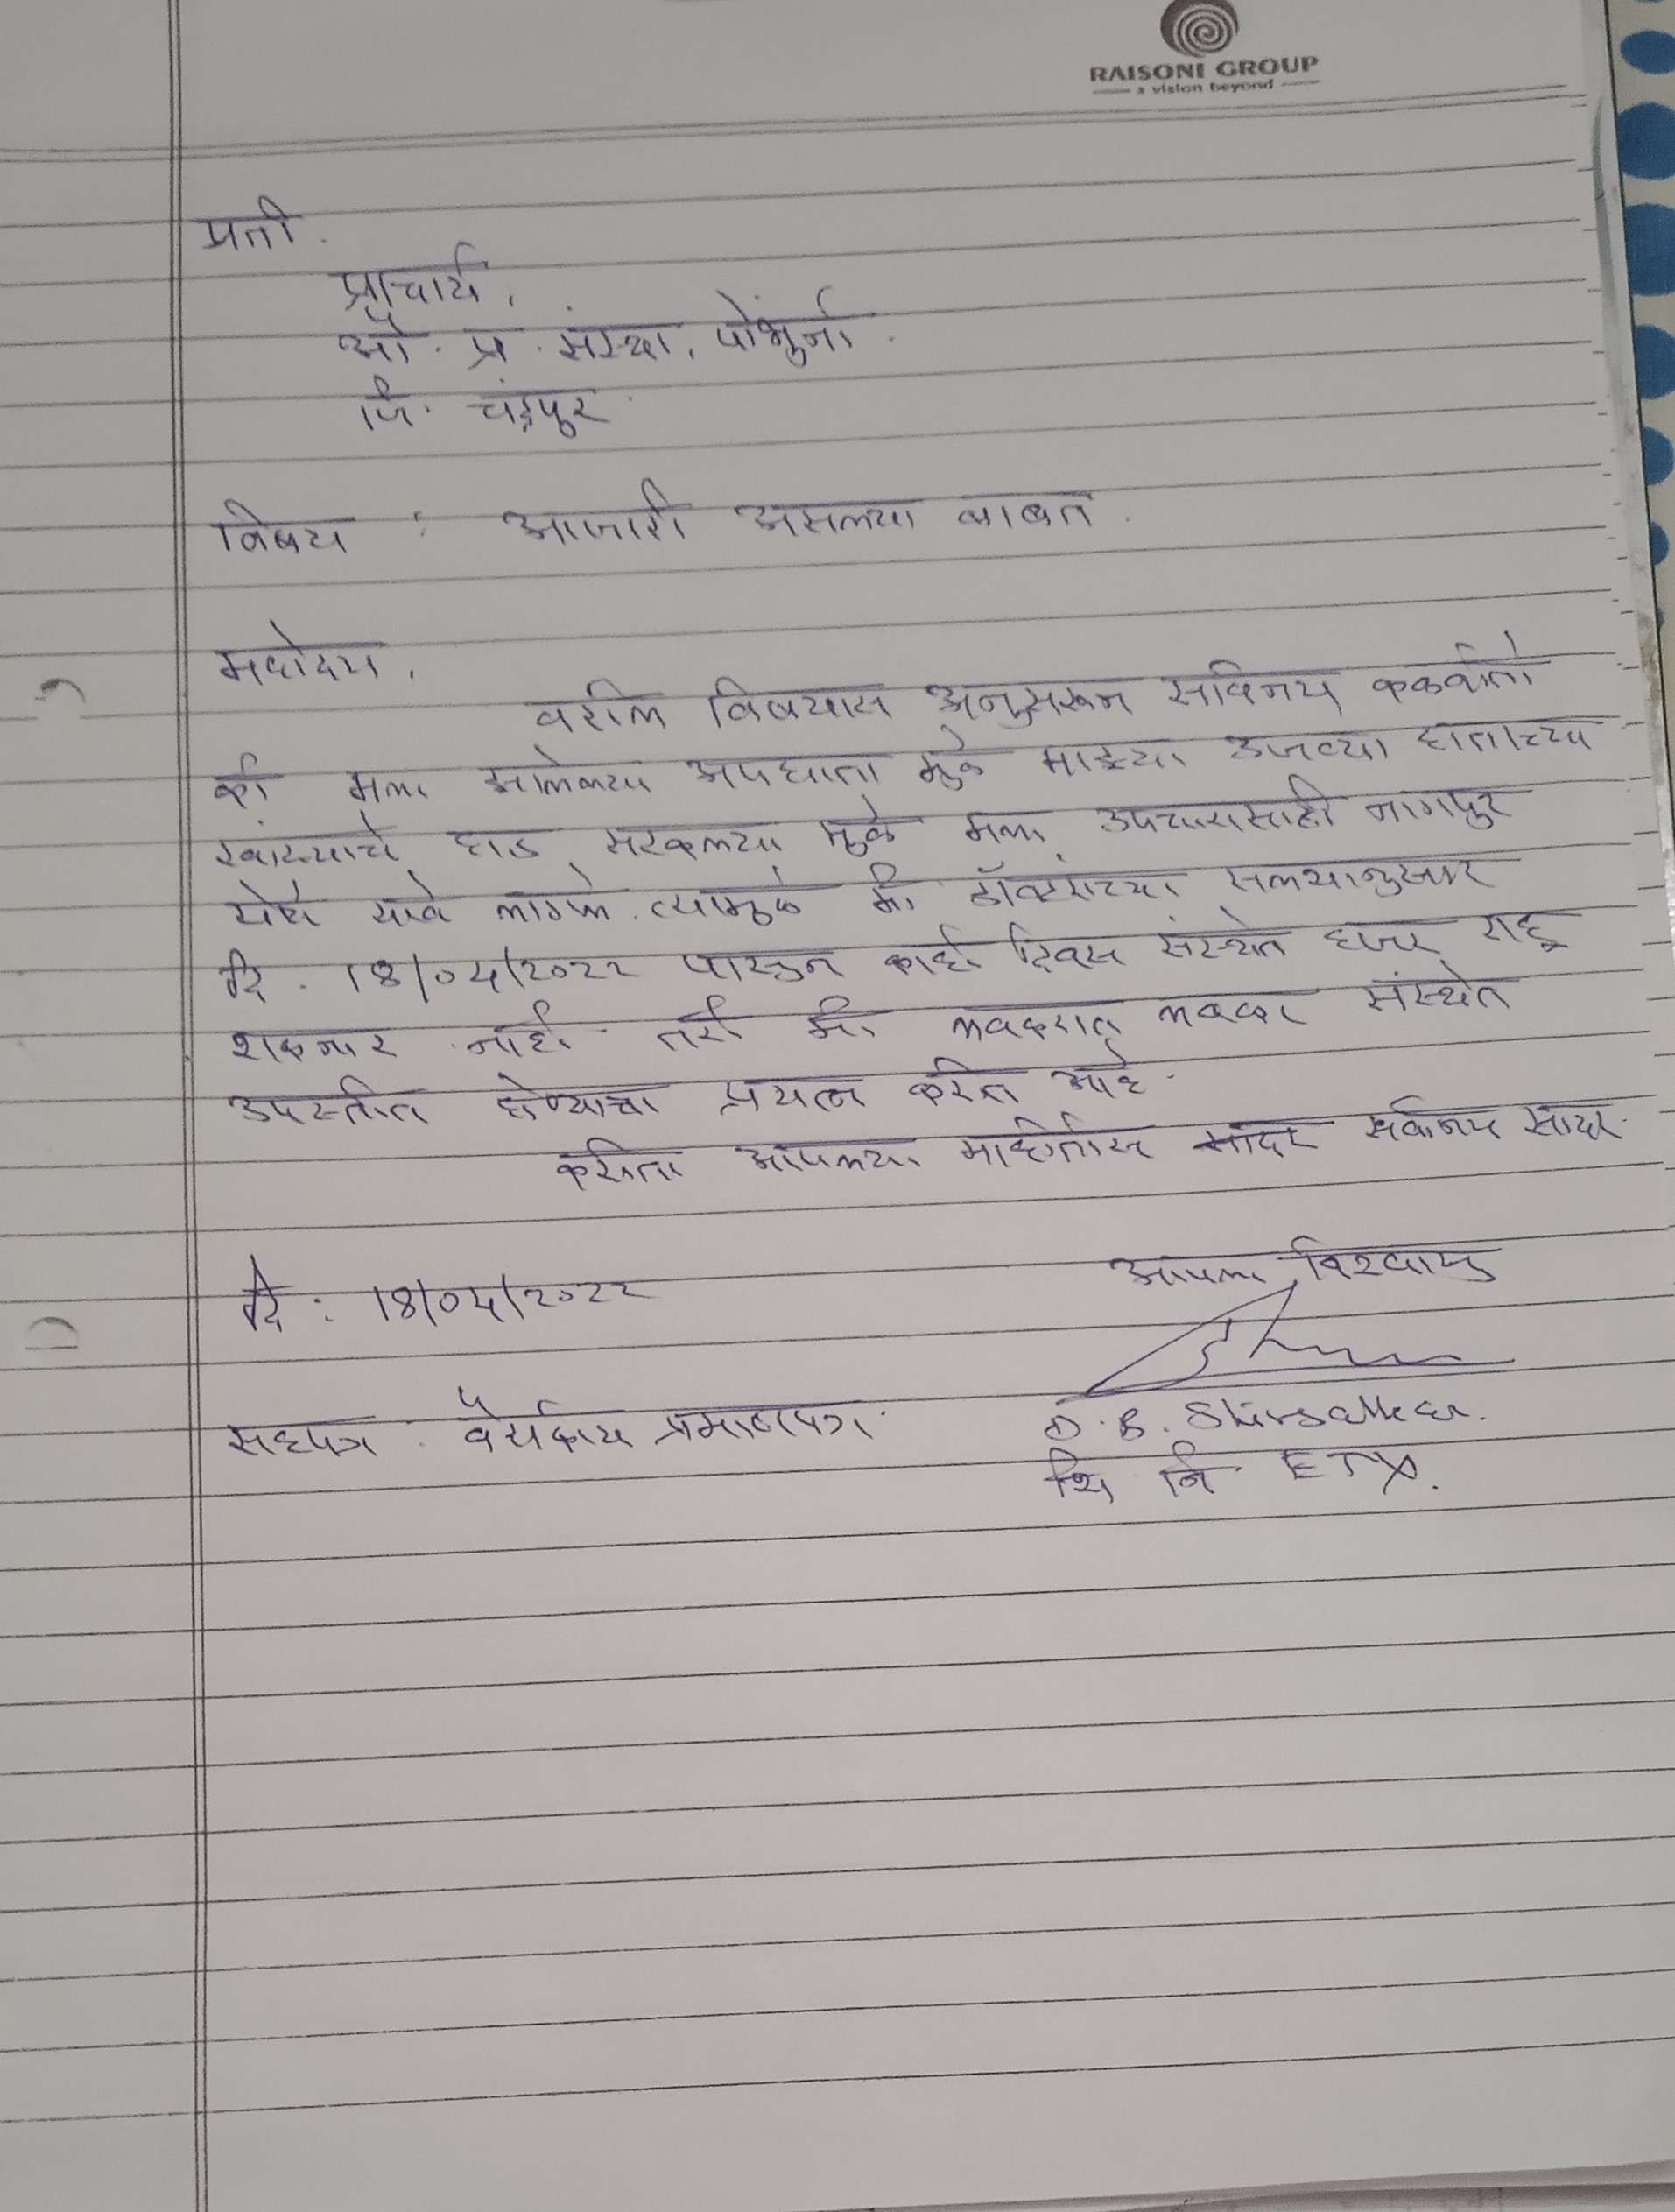 RAISONI GROUP
a vision beyond
प्रती.
प्राचार्य,
औ. प्र. संस्था, पोंभुर्ना.
जि. चंद्रपुर.
विषय : आजारी असल्या बाबत.
महोदय,
वरील विषयास अनुसरून सविनय कळवितो
की मला झालेल्या अपघाता मुळे माझ्या उजव्या हाताच्या
खांद्याचे हाड सरकल्या मुळे मला उपचारासाठी नागपुर
येथे यावे लागले. त्यामुळे मी डॉक्टरांच्या सल्यानुसार
दि. 18/04/2022 पासुन काही दिवस संस्थेत हजर राहू
शकनार नाही. तरी मी लवकरात लवकर संस्थेत
उपस्तीत होण्याचा प्रयत्न करीत आहे.
करीता आपल्या माहीतीस सादर सविनय सादर.
दि : 18/04/2022
आपला विश्वासु
सहपत्र : वैद्यकीय प्रमाणपत्र.
D. B.
शि नि